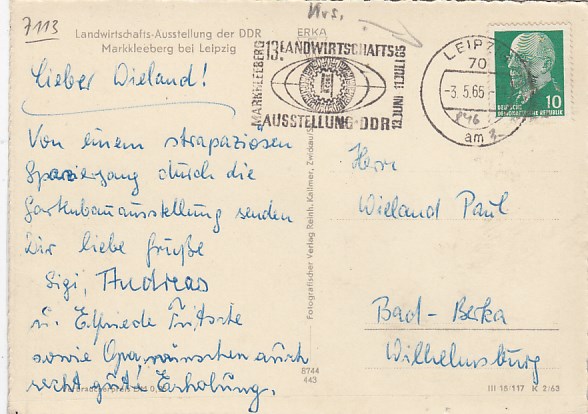 7113
Landwirtschafts-Ausstellung der DDR
Markkleeberg bei Leipzig
ERKA
Lieber Wieland!
Von einem strapaziösen
Spaziergang durch die
Gartenbauausstellung senden
Dir liebe Grüße
Sigi, Andreas
u. Elfriede Fritsche
sowie Opa, wünschen auch
recht gute Erholung.
MARKKLEEBERG
13. LANDWIRTSCHAFTS
AUSSTELLUNG · DDR
13. JUNI 11. JULI 65
LEIPZ
70
-3.5.65
am
10
DEUTSCHE
DEMOKRATISCHE REPUBLIK
Fotografischer Verlag Reinh. Kallmer, Zwickau/S
Herr
Wieland Paul
Bad-Berka
Wilhelmsburg
8744
443
III 18/117 K 2/63